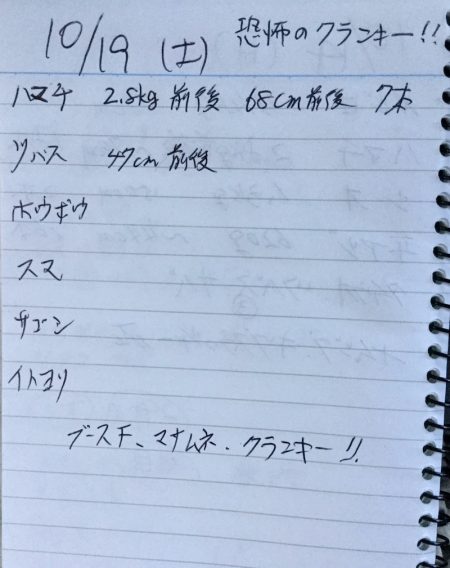 10/19 (土) 恐怖のクランキー!!
ハマチ 2.8kg前後 68cm前後 7本
ツバス 47cm前後
ホウボウ
スマ
サゴシ
イトヨリ
ブースF、マナムネ、クランキー!!